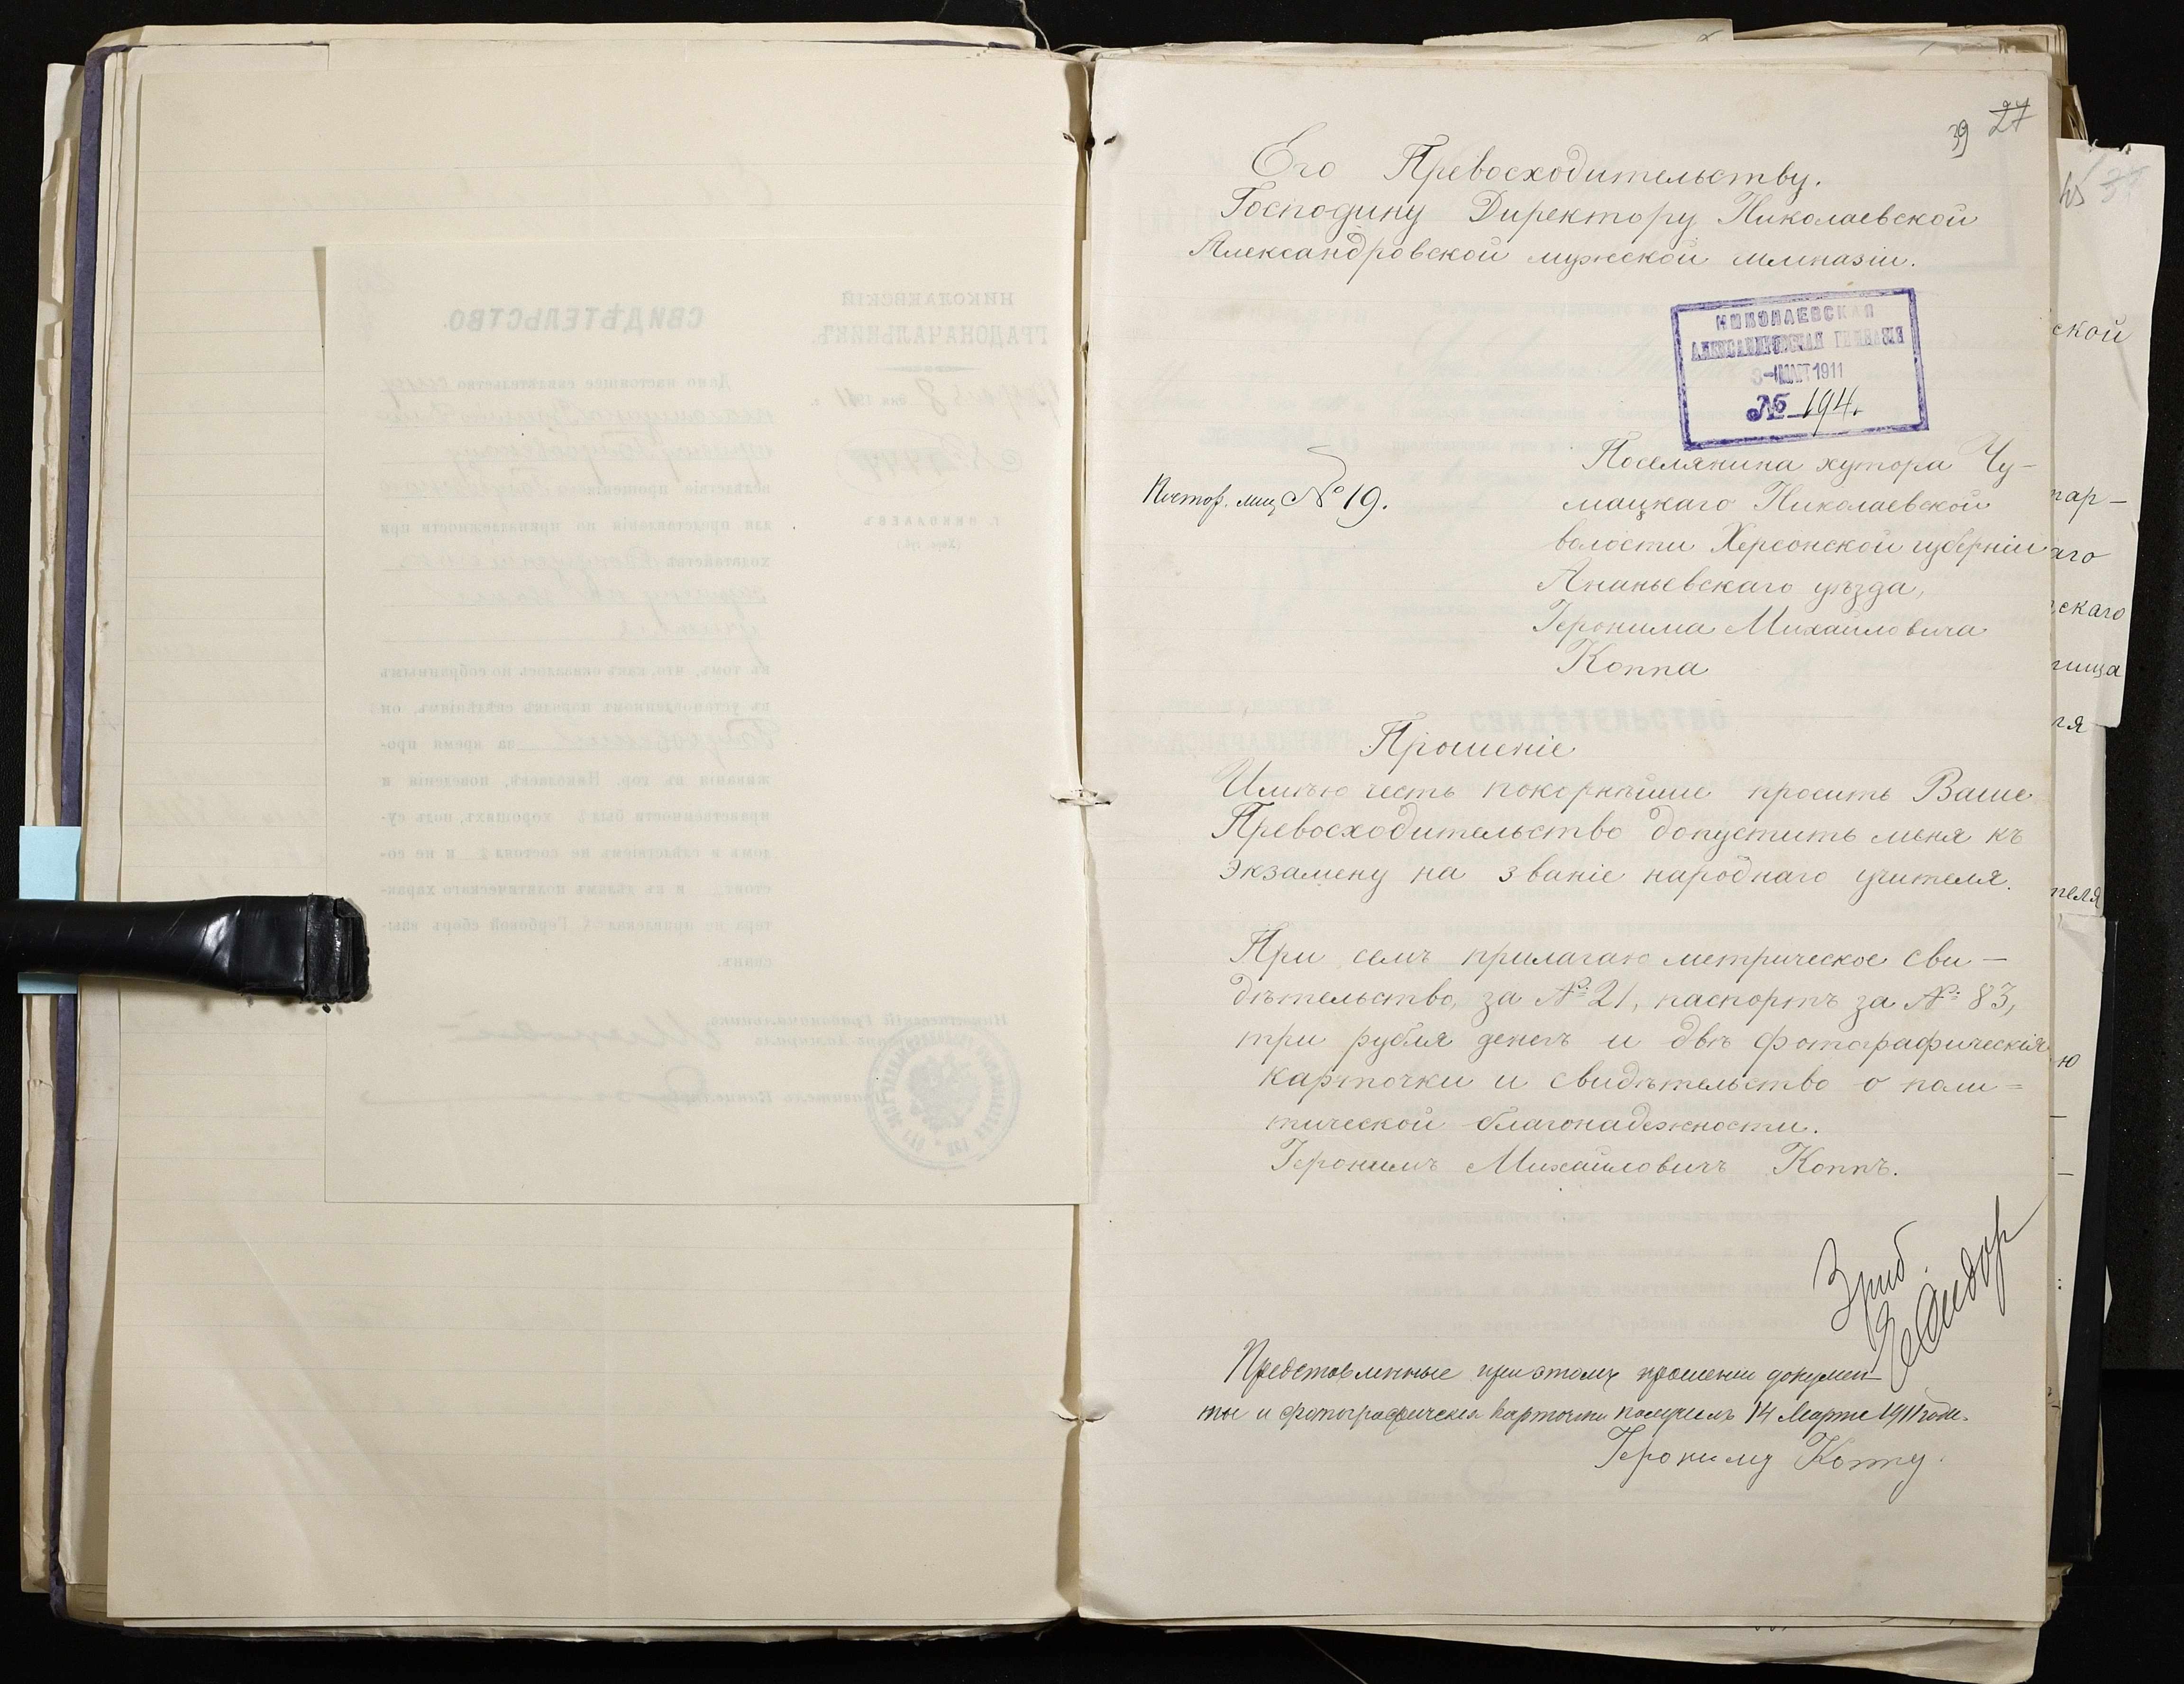 39 27
Его Превосходительству.
Господину Директору Николаевской
Александровской мужской гимназіи.
НИКОЛАЕВСКАЯ
АЛЕКСАНДРОВСКАЯ ГИМНАЗІЯ
МАР 1911
№ 194.
Поселянина хутора Чу-
мацкаго Николаевской
волости Херсонской губерніи
Ананьевскаго уѣзда,
Іеронима Михаиловича
Коппа
Постор. лиц № 19.
Прошеніе
Имѣю честь покорнѣйше просить Ваше
Превосходительство допустить меня къ
экзамену на званіе народнаго учителя.
При семъ прилагаю метрическое сви-
дѣтельство, за № 21, паспортъ за № 83,
три рубля денегъ и двѣ фотографическія
карточки и свидѣтельство о поли=
тической благонадежности.
Іеронимъ Михаиловичъ Коппъ.
Представленные при этомъ прошеніи докумен-
ты и фотографическія карточки получилъ 14 Марта 1911 года.
Іерониму Коппу.
СВИДѢТЕЛЬСТВО.
НИКОЛАЕВСКІЙ
ГРАДОНАЧАЛЬНИКЪ.
Дано настоящее свидѣтельство
г. НИКОЛАЕВЪ
для представленія по принадлежности при
ходатайствѣ
въ томъ, что, какъ оказалось по собраннымъ
въ установленномъ порядкѣ свѣдѣніямъ, он
за время про-
живанія въ гор. Николаевѣ, поведенія и
нравственности был хорошихъ, подъ су-
домъ и слѣдствіемъ не состоял и не со-
стоит и къ дѣламъ политическаго харак-
тера не привлекал Гербовой сборъ взы-
сканъ.
Николаевскій Градоначальникъ,
ской
аго
скаго
ля
теля
ю